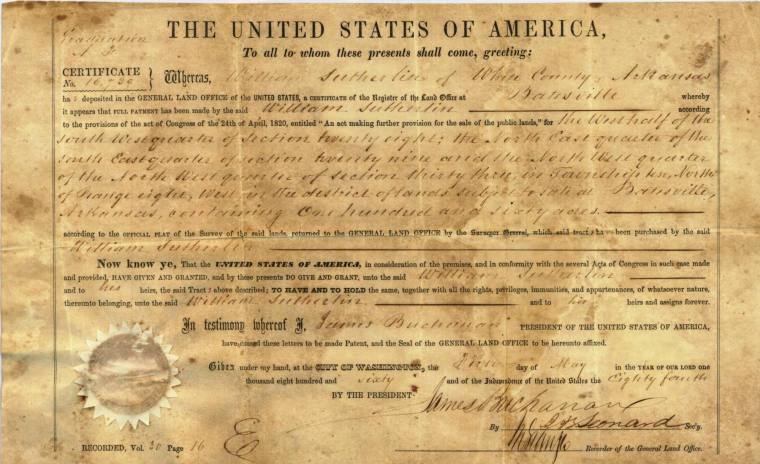 THE UNITED STATES OF AMERICA,
To all to whom these presents shall come, greeting:
Graduation
CERTIFICATE
No. 16,736 Whereas, William Sutherlin of White County, Arkansas
has deposited in the GENERAL LAND OFFICE of the UNITED STATES, a CERTIFICATE of the Register of the Land Office at Batesville whereby
it appears that FULL PAYMENT has been made by the said William Sutherlin according
to the provisions of the act of Congress of the 24th of April, 1820, entitled "An act making further provision for the sale of the public lands," for the West half of the
South West quarter of Section twenty eight; the North East quarter of the
South East quarter of section twenty nine and the North West quarter
of the North West quarter of section thirty three, in Township ten, North
of Range eight, West, in the district of lands subject to sale at Batesville,
Arkansas, containing One hundred and sixty acres.
according to the OFFICIAL PLAT of the Survey of the said lands, returned to the GENERAL LAND OFFICE by the Surveyor General, which said tracts have been purchased by the said
William Sutherlin
Now know ye, That the UNITED STATES OF AMERICA, in consideration of the premises, and in conformity with the several Acts of Congress in such case made
and provided, HAVE GIVEN AND GRANTED, and by these presents DO GIVE AND GRANT, unto the said William Sutherlin
and to his heirs, the said Tracts above described; TO HAVE AND TO HOLD the same, together with all the rights, privileges, immunities, and appurtenances, of whatsoever nature,
thereunto belonging, unto the said William Sutherlin and to his heirs and assigns forever.
In testimony whereof I, James Buchanan PRESIDENT OF THE UNITED STATES OF AMERICA,
have caused these letters to be made Patent, and the Seal of the GENERAL LAND OFFICE to be hereunto affixed.
Given under my hand, at the CITY OF WASHINGTON, the day of May in the YEAR OF OUR LORD one
thousand eight hundred and sixty and of the Independence of the United States the Eighty fourth
BY THE PRESIDENT James Buchanan
By Leonard Sec'y.
RECORDED, Vol. 30 Page 16 E Recorder of the General Land Office.